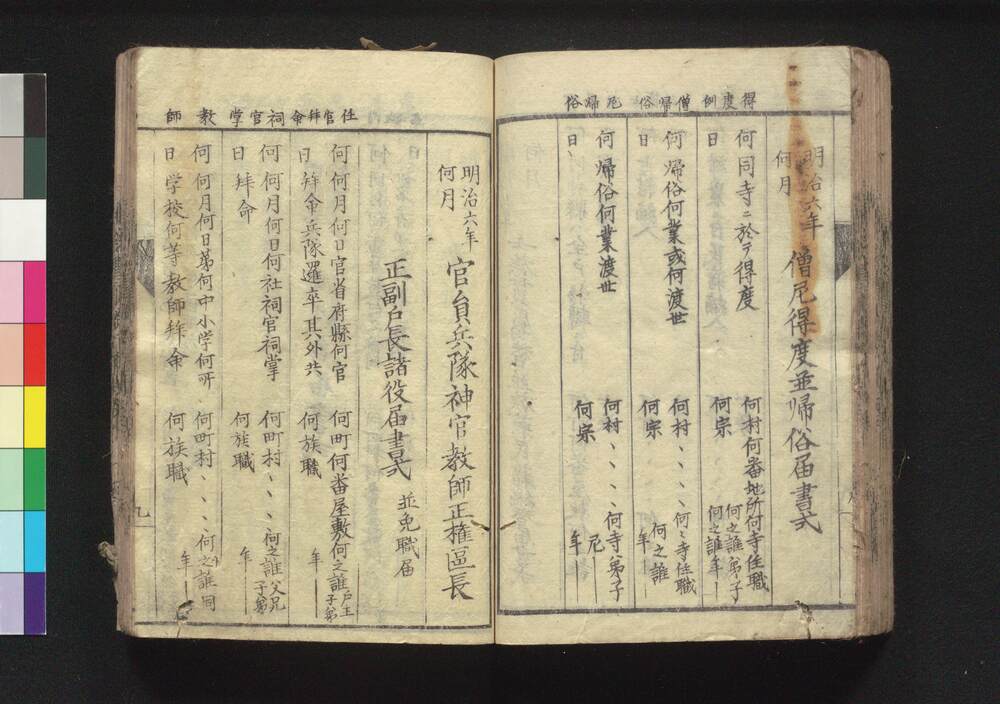 得度例
僧帰俗
尼帰俗
明治六年
何月
僧尼得度並帰俗届書式
何同寺ニ於テ得度
日
何村何番地所何寺住職
何之誰弟子
何宗
何之誰年
何帰俗何業或何渡世
日
何村、、、、何々寺住職
何宗
何之誰
年
何帰俗何業渡世
日
何村、、、何寺弟子
何宗
尼
年
任官拝命
祠官掌
教師
明治六年
何月
官員兵隊神官教師正権區長
正副戸長諸役届書式
並免職届
何何月何日官省府縣何官
日拜命兵隊邏卒其外共
何町何番屋敷何之誰戸主
子弟
何族職
年
何何月何日何社祠官祠掌
日拜命
何町村、、、何之誰父兄
子弟
何族職
年
何何月何日第何中小学何所
日学校何等教師拜命
何町村、、、何之誰同
何族職
年
九